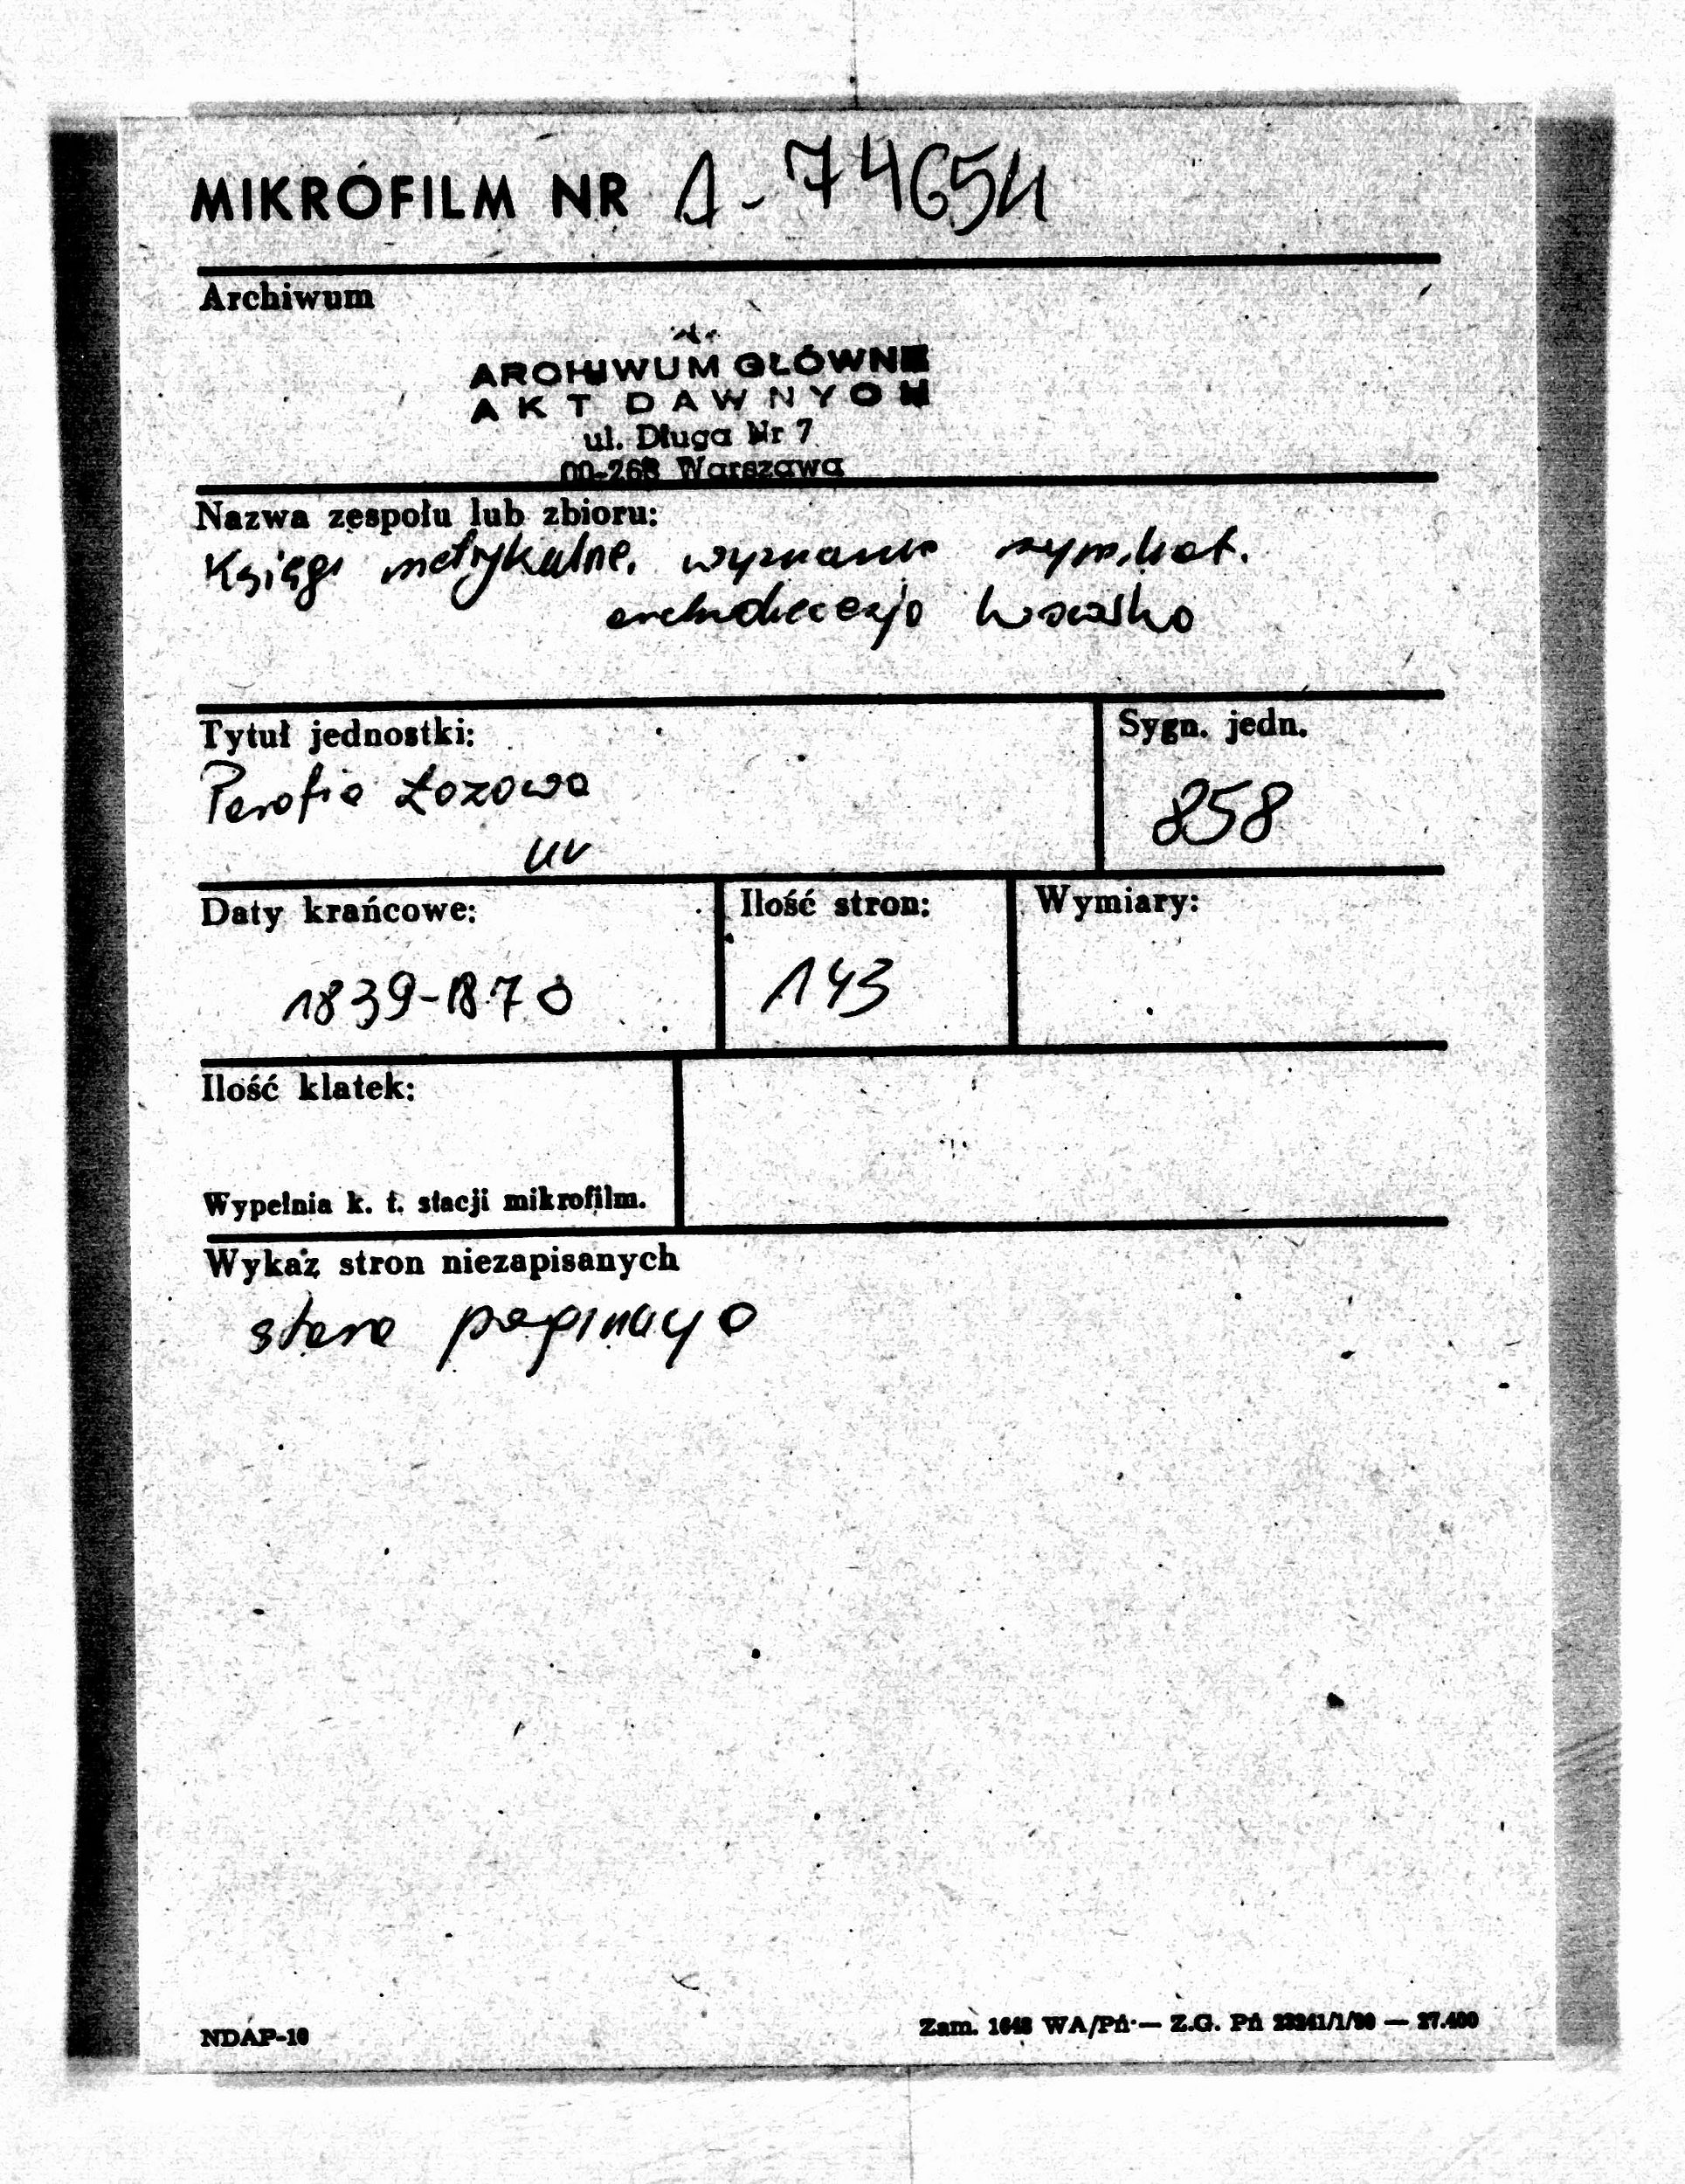 MIKROFILM NR A-74654
Archiwum
ARCHIWUM GŁÓWNE
AKT DAWNYCH
ul. Długa Nr 7
00-263 Warszawa
Nazwa zespołu lub zbioru:
Księgi metrykalne wyznania rzym.kat.
archidiecezja lwowska
Tytuł jednostki:
Parafia Łozowa
uv
Sygn. jedn.
858
Daty krańcowe:
1839-1870
Ilość stron:
143
Wymiary:
Ilość klatek:
Wypełnia k. t. stacji mikrofilm.
Wykaz stron niezapisanych
stara paginacja
NDAP-10
Zam. 1648 WA/Pń — Z.G. Pń 23241/1/90 — 27.400